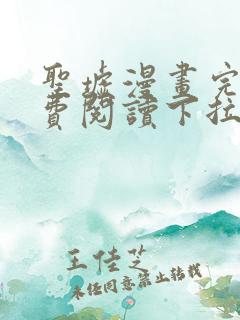 聖墟漫畫完
費閱讀下拉
王佳芝
未经同意禁止转载